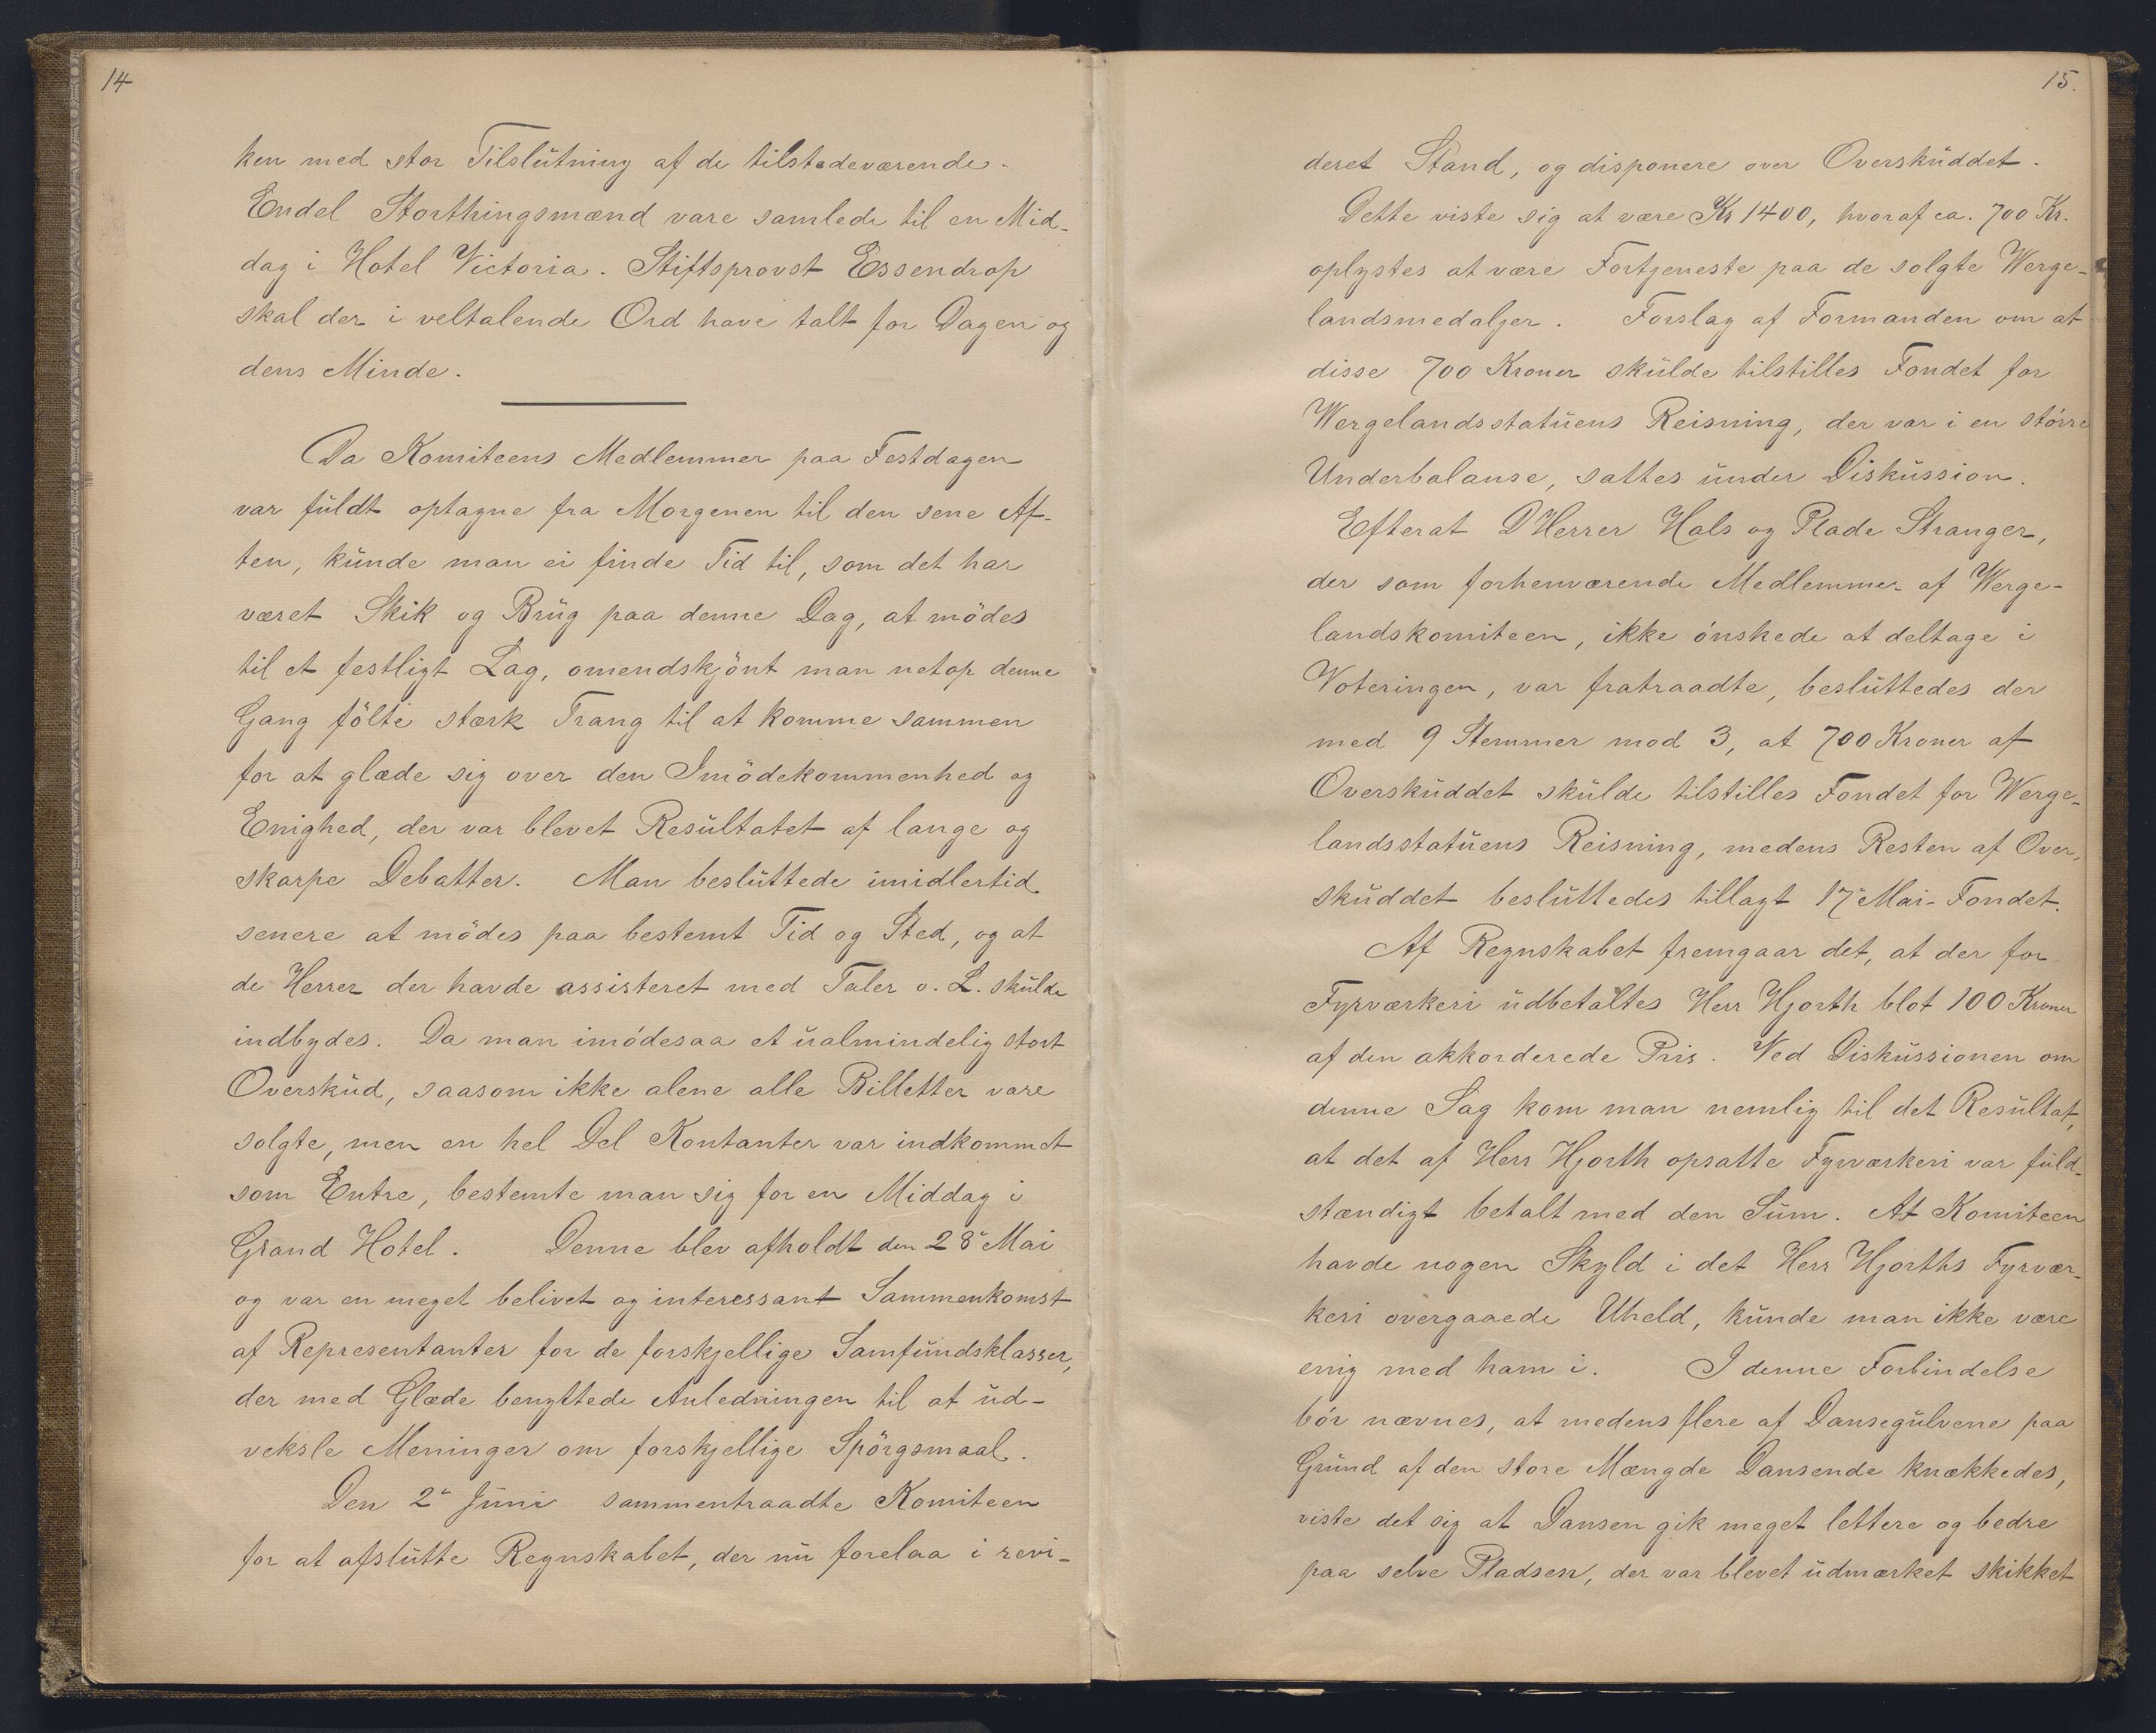 14
ken med stor Tilslutning af de tilstedeværende.
Endel Storthingsmænd vare samlede til en Mid-
dag i Hotel Victoria. Stiftsprovst Essendrop
skal der i veltalende Ord have talt for Dagen og
dens Minde.
Da Komiteens Medlemmer paa Festdagen
var fuldt optagne fra Morgenen til den sene Af-
ten, kunde man ei finde Tid til, som det har
været Skik og Brug paa denne Dag, at mödes
til et festligt Lag, omendskjönt man netop denne
Gang fölte stærk Trang til at komme sammen
for at glæde sig over den Imödekommenhed og
Enighed, der var blevet Resultatet af lange og
skarpe Debatter. Man besluttede imidlertid
senere at mödes paa bestemt Tid og Sted, og at
de Herrer der havde assisteret med Taler o. L. skulde
indbydes. Da man imödesaa et ualmindelig stort
Overskud, saasom ikke alene alle Billetter vare
solgte, men en hel Del Kontanter var indkommet
som Entre, bestemte man sig for en Middag i
Grand Hotel. Denne blev afholdt den 28de Mai
og var en meget belivet og interessant Sammenkomst
af Representanter for de forskjellige Samfundsklasser,
der med Glæde benyttede Anledningen til at ud-
veksle Meninger om forskjellige Spörgsmaal.
Den 2den Juni sammentraadte Komiteen
for at afslutte Regnskabet, der nu forelaa i revi-
15.
deret Stand, og disponere over Overskuddet.
Dette viste sig at være Kr 1400, hvoraf ca. 700 Kr.
oplystes at være Fortjeneste paa de solgte Werge-
landsmedaljer. Forslag af Formanden om at
disse 700 Kroner skulde tilstilles Fondet for
Wergelandsstatuens Reisning, der var i en större
Underbalanse, sattes under Diskussion.
Efterat D'Herrer Hals og Plade Stranger,
der som forhenværende Medlemmer af Werge-
landskomiteen, ikke önskede at deltage i
Voteringen, var fratraadte, besluttedes der
med 9 Stemmer mod 3, at 700 Kroner af
Overskuddet skulde tilstilles Fondet for Werge-
landsstatuens Reisning, medens Resten af Over-
skuddet besluttedes tillagt 17de Mai-Fondet.
Af Regnskabet fremgaar det, at der for
Fyrværkeri udbetaltes Herr Hjorth blot 100 Kroner
af den akkorderede Pris. Ved Diskussionen om
denne Sag kom man nemlig til det Resultat,
at det af Herr Hjorth opsatte Fyrværkeri var fuld-
stændigt betalt med den Sum. At Komiteen
havde nogen Skyld i det Herr Hjorths Fyrvær-
keri overgaaede Uheld, kunde man ikke være
enig med ham i. I denne Forbindelse
bör nævnes, at medens flere af Dansegulvene paa
Grund af den store Mængde Dansende knækkedes,
viste det sig at Dansen gik meget lettere og bedre
paa selve Pladsen, der var blevet udmærket skikket